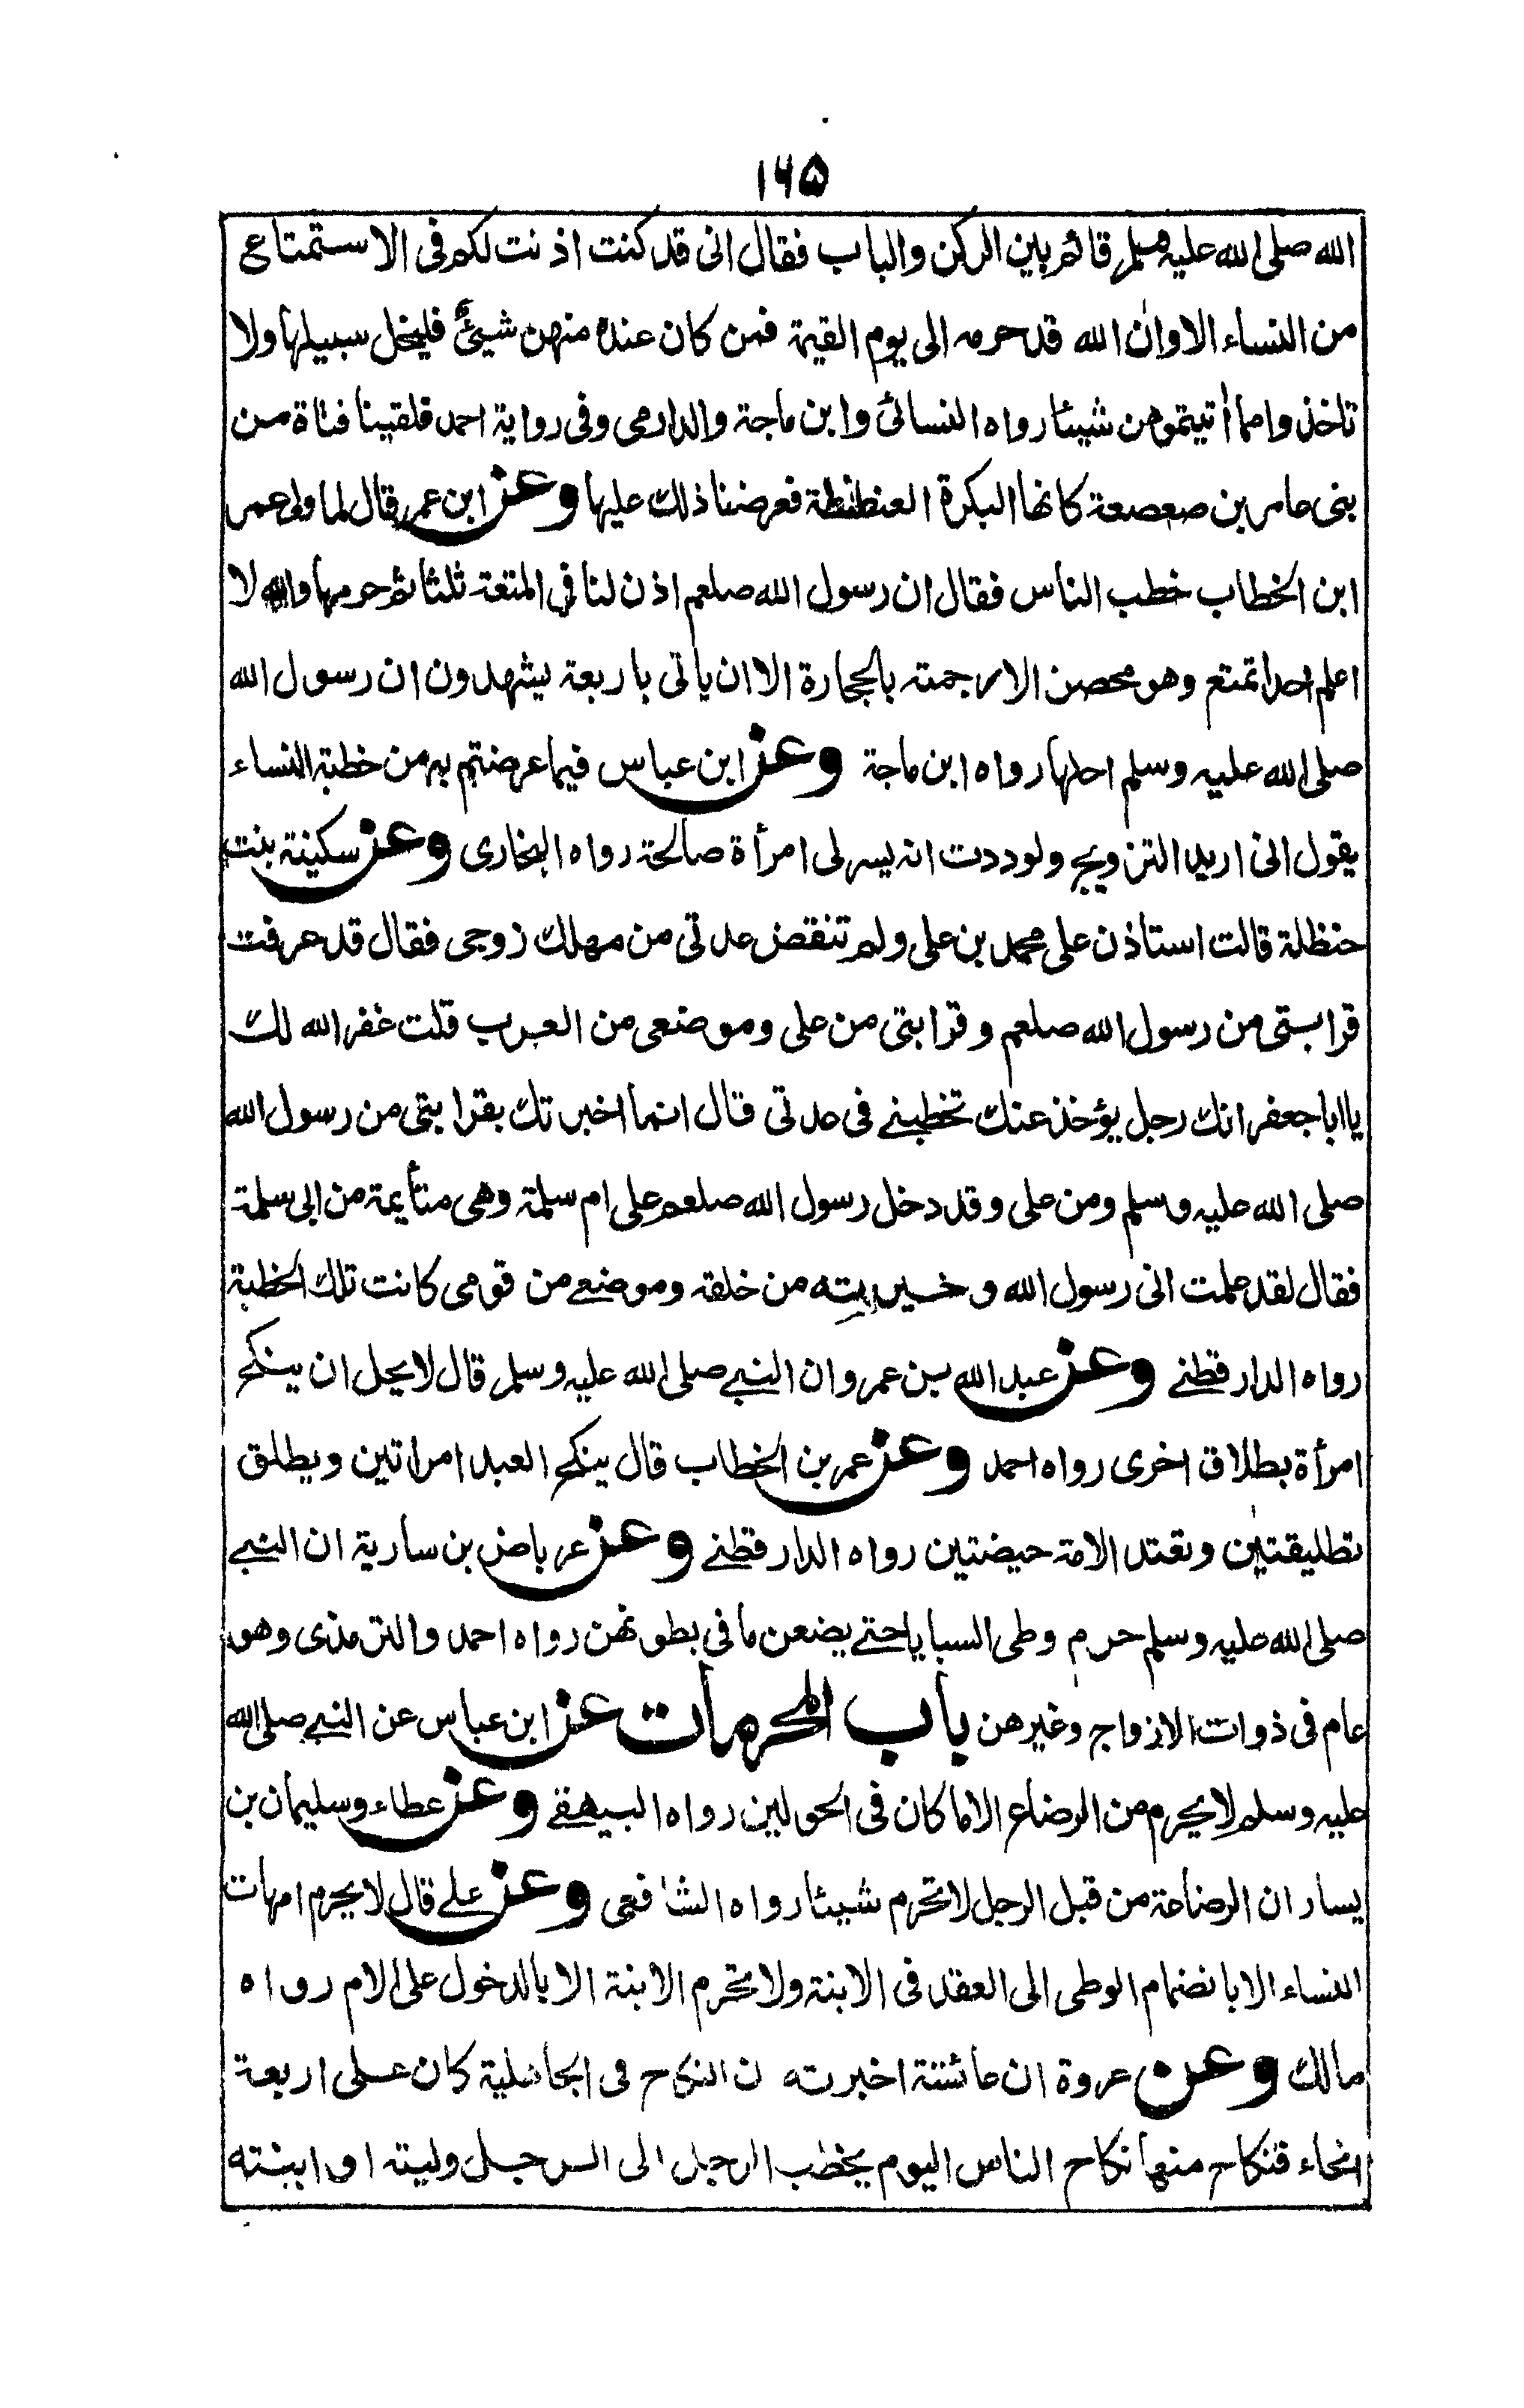 ۱۶۵
الله صلى الله عليه وسلم قائم بين الركن والباب فقال انى قد كنت اذنت لكم فى الاستمتاع
من النساء الا وان الله قد حرمه الى يوم القيمة فمن كان عنده منهن شيئ فليخل سبيلها ولا
تاخذ وامما أتيتموهن شيئا رواه النسائى وابن ماجة والدارمى وفى رواية احمد فلقينا فتاة من
بنى عامر بن صعصعة كانها البكرة العنطنطة فعرضنا ذلك عليها وعن ابن عمر قال لما ولى عمر
ابن الخطاب خطب الناس فقال ان رسول الله صلعم اذن لنا في المتعة ثلثا ثم حرمها والله لا
اعلم احدا تمتع وهو محصن الا رجمته بالحجارة الا ان ياتى باربعة يشهدون ان رسول الله
صلى الله عليه وسلم احلها رواه ابن ماجة وعن ابن عباس فيما عرضتم به من خطبة النساء
يقول انى اريد التزويج ولوددت انه يسر لى امرأة صالحة رواه البخارى وعن سكينة بنت
حنظلة قالت استاذن على محمد بن على ولم تنقض عدتى من مهلك زوجى فقال قد عرفت
قرابتى من رسول الله صلعم وقرابتى من على وموضعى من العرب قلت غفر الله لك
يا ابا جعفر انك رجل يؤخذ عنك تخطبنے فى عدتى قال انما اخبرتك بقرابتى من رسول الله
صلى الله عليه وسلم ومن على وقد دخل رسول الله صلعم على ام سلمة وهى متأيمة من ابى سلمة
فقال لقد علمت انى رسول الله و خيرته من خلقه وموضعے من قومى كانت تلك الخطبة
رواه الدارقطنے وعن عبد الله بن عمرو ان النبے صلى الله عليه وسلم قال لا يحل ان ينكح
امرأة بطلاق اخرى رواه احمد وعن عمر بن الخطاب قال ينكح العبد امراتين ويطلق
تطليقتين وتعتد الامة حيضتين رواه الدارقطنے وعن عرباض بن سارية ان النبے
صلى الله عليه وسلم حرم وطى السبايا حتے يضعن ما فى بطونهن رواه احمد والترمذى وهو
عام فى ذوات الازواج وغيرهن باب المحرمات عن ابن عباس عن النبے صلى الله
عليه وسلم لا يحرم من الرضاع الا ما كان فى الحولين رواه البيهقے وعن عطاء وسليمان بن
يسار ان الرضاعة من قبل الرجل لا تحرم شيئا رواه الشافعى وعن علے قال لا يحرم امهات
النساء الا بانضمام الوطى الى العقد فى الابنة ولا تحرم الابنة الا بالدخول على الام رواه
مالك وعن عروة ان عائشة اخبرته ن النكاح فى الجاهلية كان على اربعة
انحاء فنكاح منها نكاح الناس اليوم يخطب الرجل الى الرجل وليته او ابنته